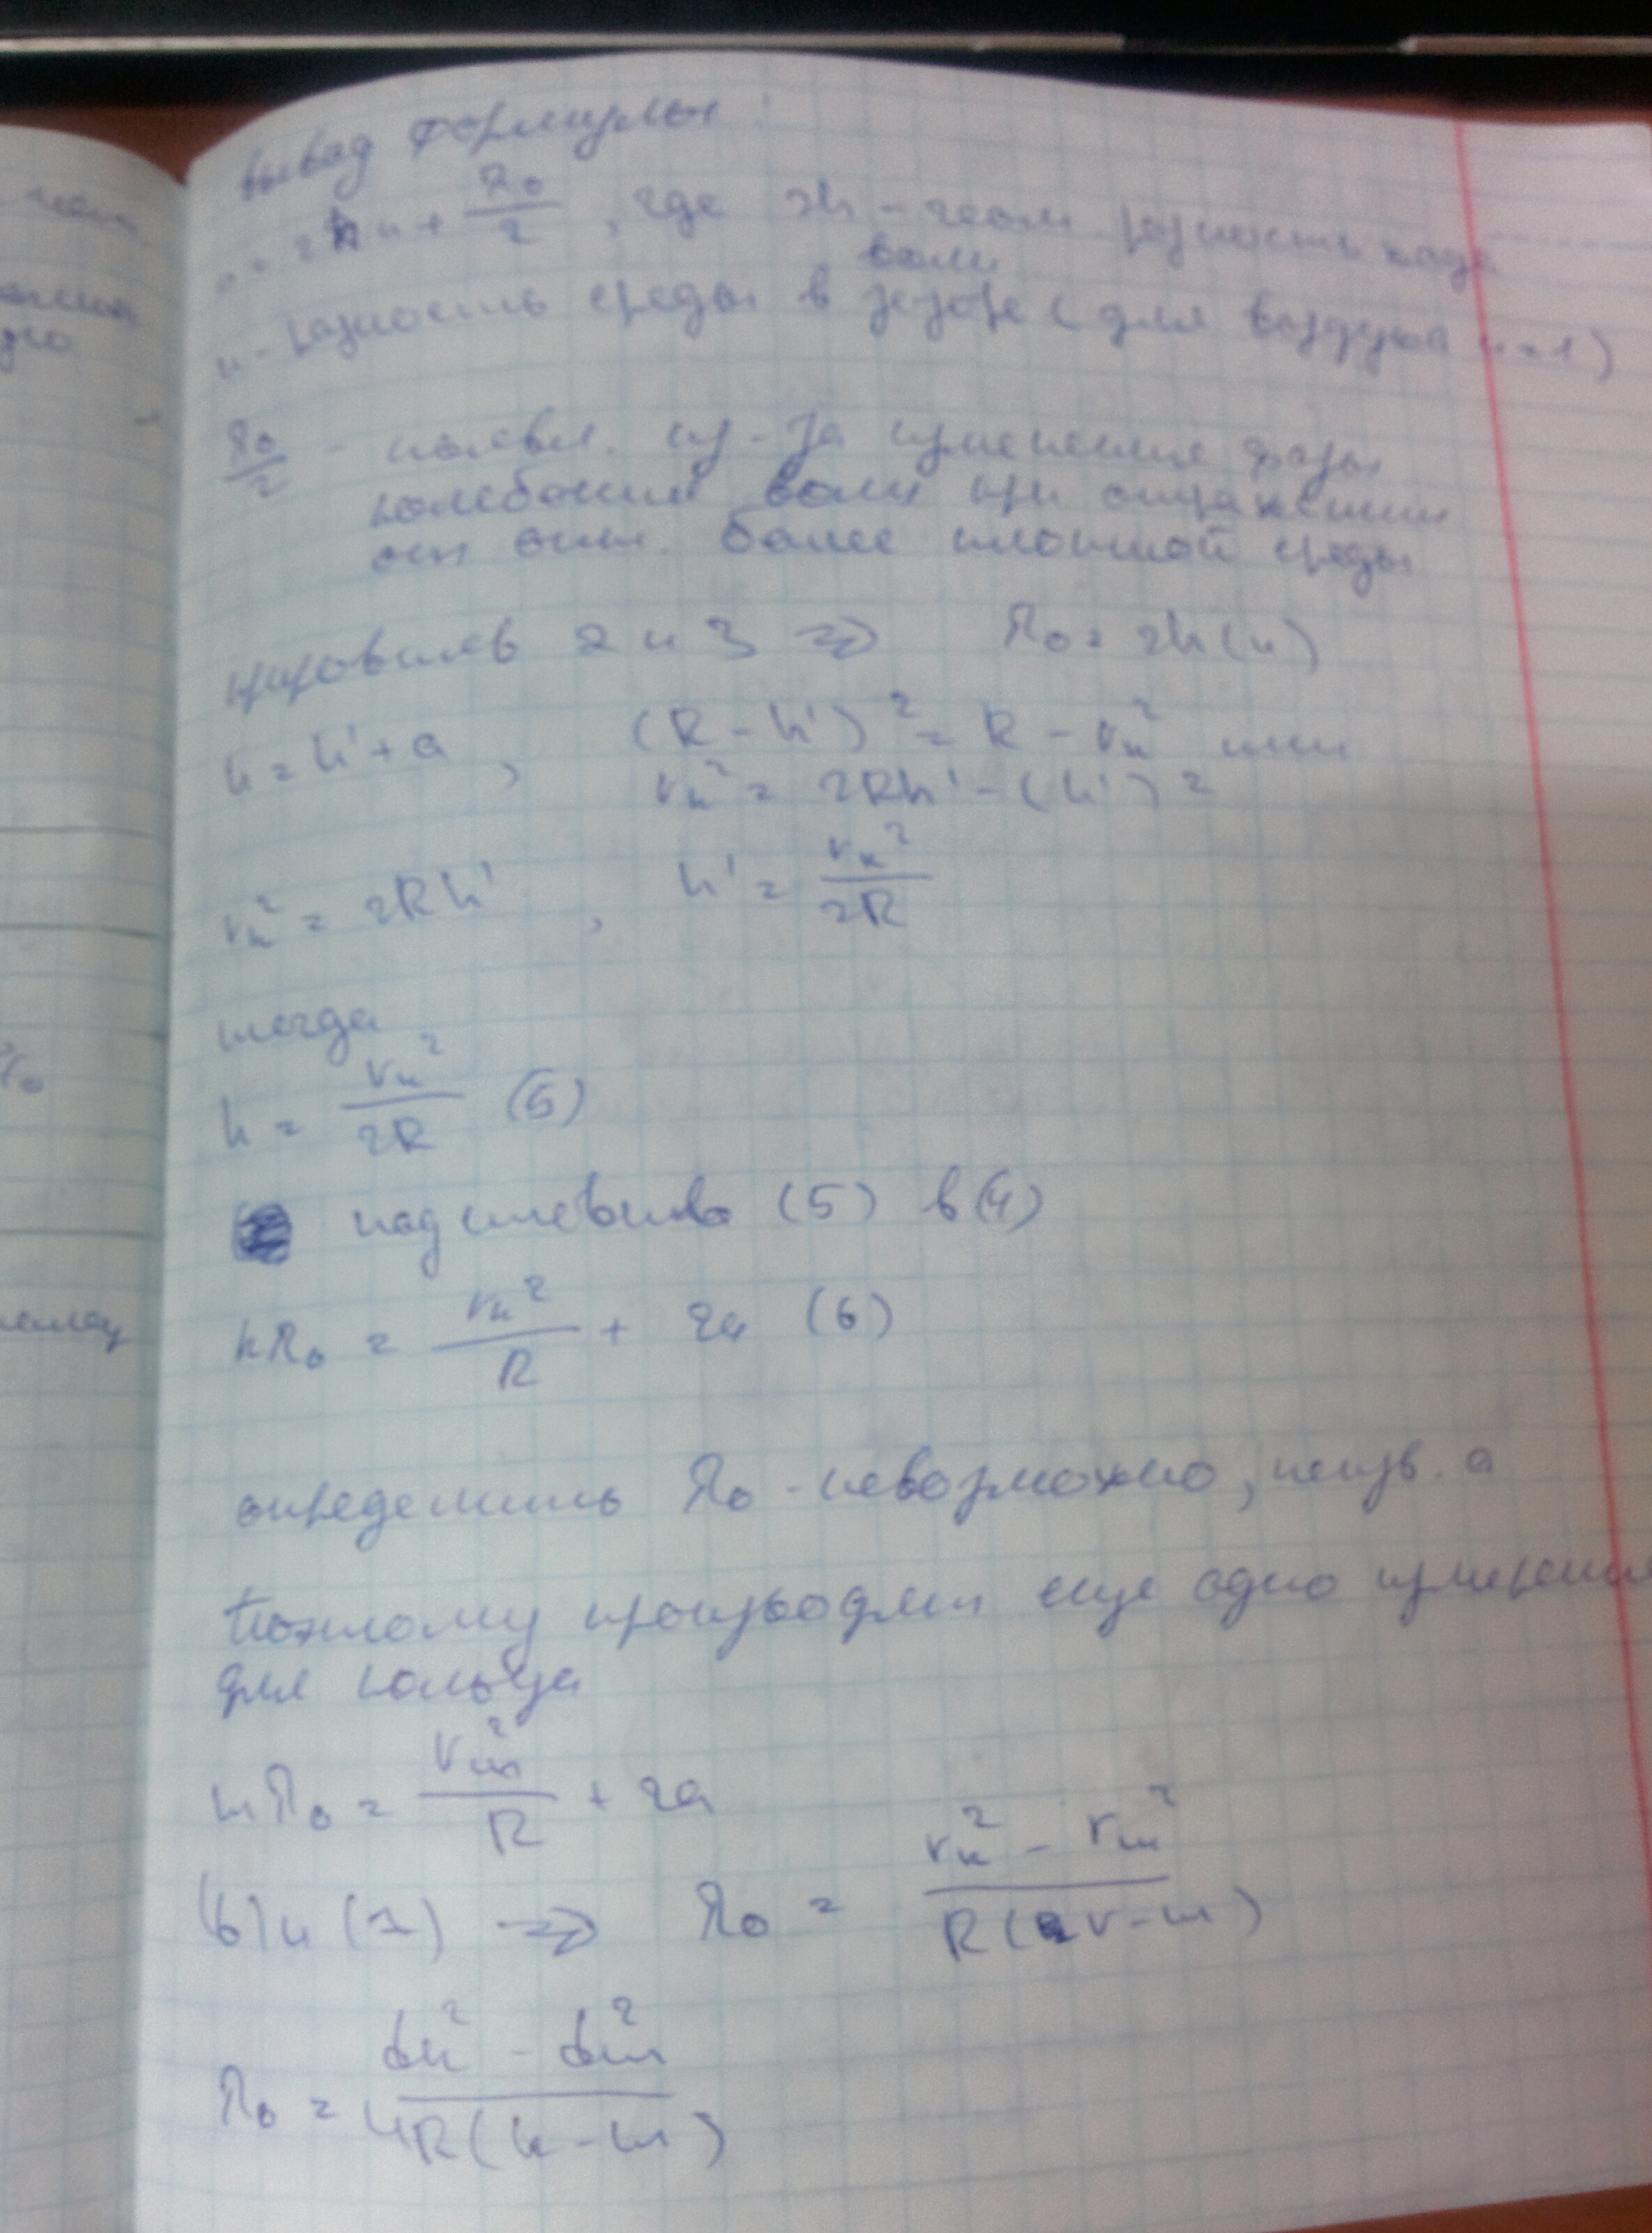 вывод формулы:
δ = 2hn + λ₀/2, где 2h - геом. разность хода
волн
n - разность среды в зазоре (для воздуха n=1)
λ₀/2 - появл. из-за изменения фазы
колебаний волн при отражении
от опт. более плотной среды
приравняв 2 и 3 => λ₀ = 2h (4)
h = h' + a, (R - h')² = R - rₖ² или
rₖ² = 2Rh' - (h')2
rₖ² = 2Rh', h' = rₖ²/2R
тогда
h = rₖ²/2R (5)
подставив (5) в (4)
kλ₀ = rₖ²/R + 2a (6)
определить λ₀ - невозможно, неизв. a
Поэтому производят еще одно измерение
для кольца
mλ₀ = rₘ²/R + 2a
(6) и (7) => λ₀ = (rₖ² - rₘ²)/R(k-m)
λ₀ = (dₖ² - dₘ²)/4R(k-m)